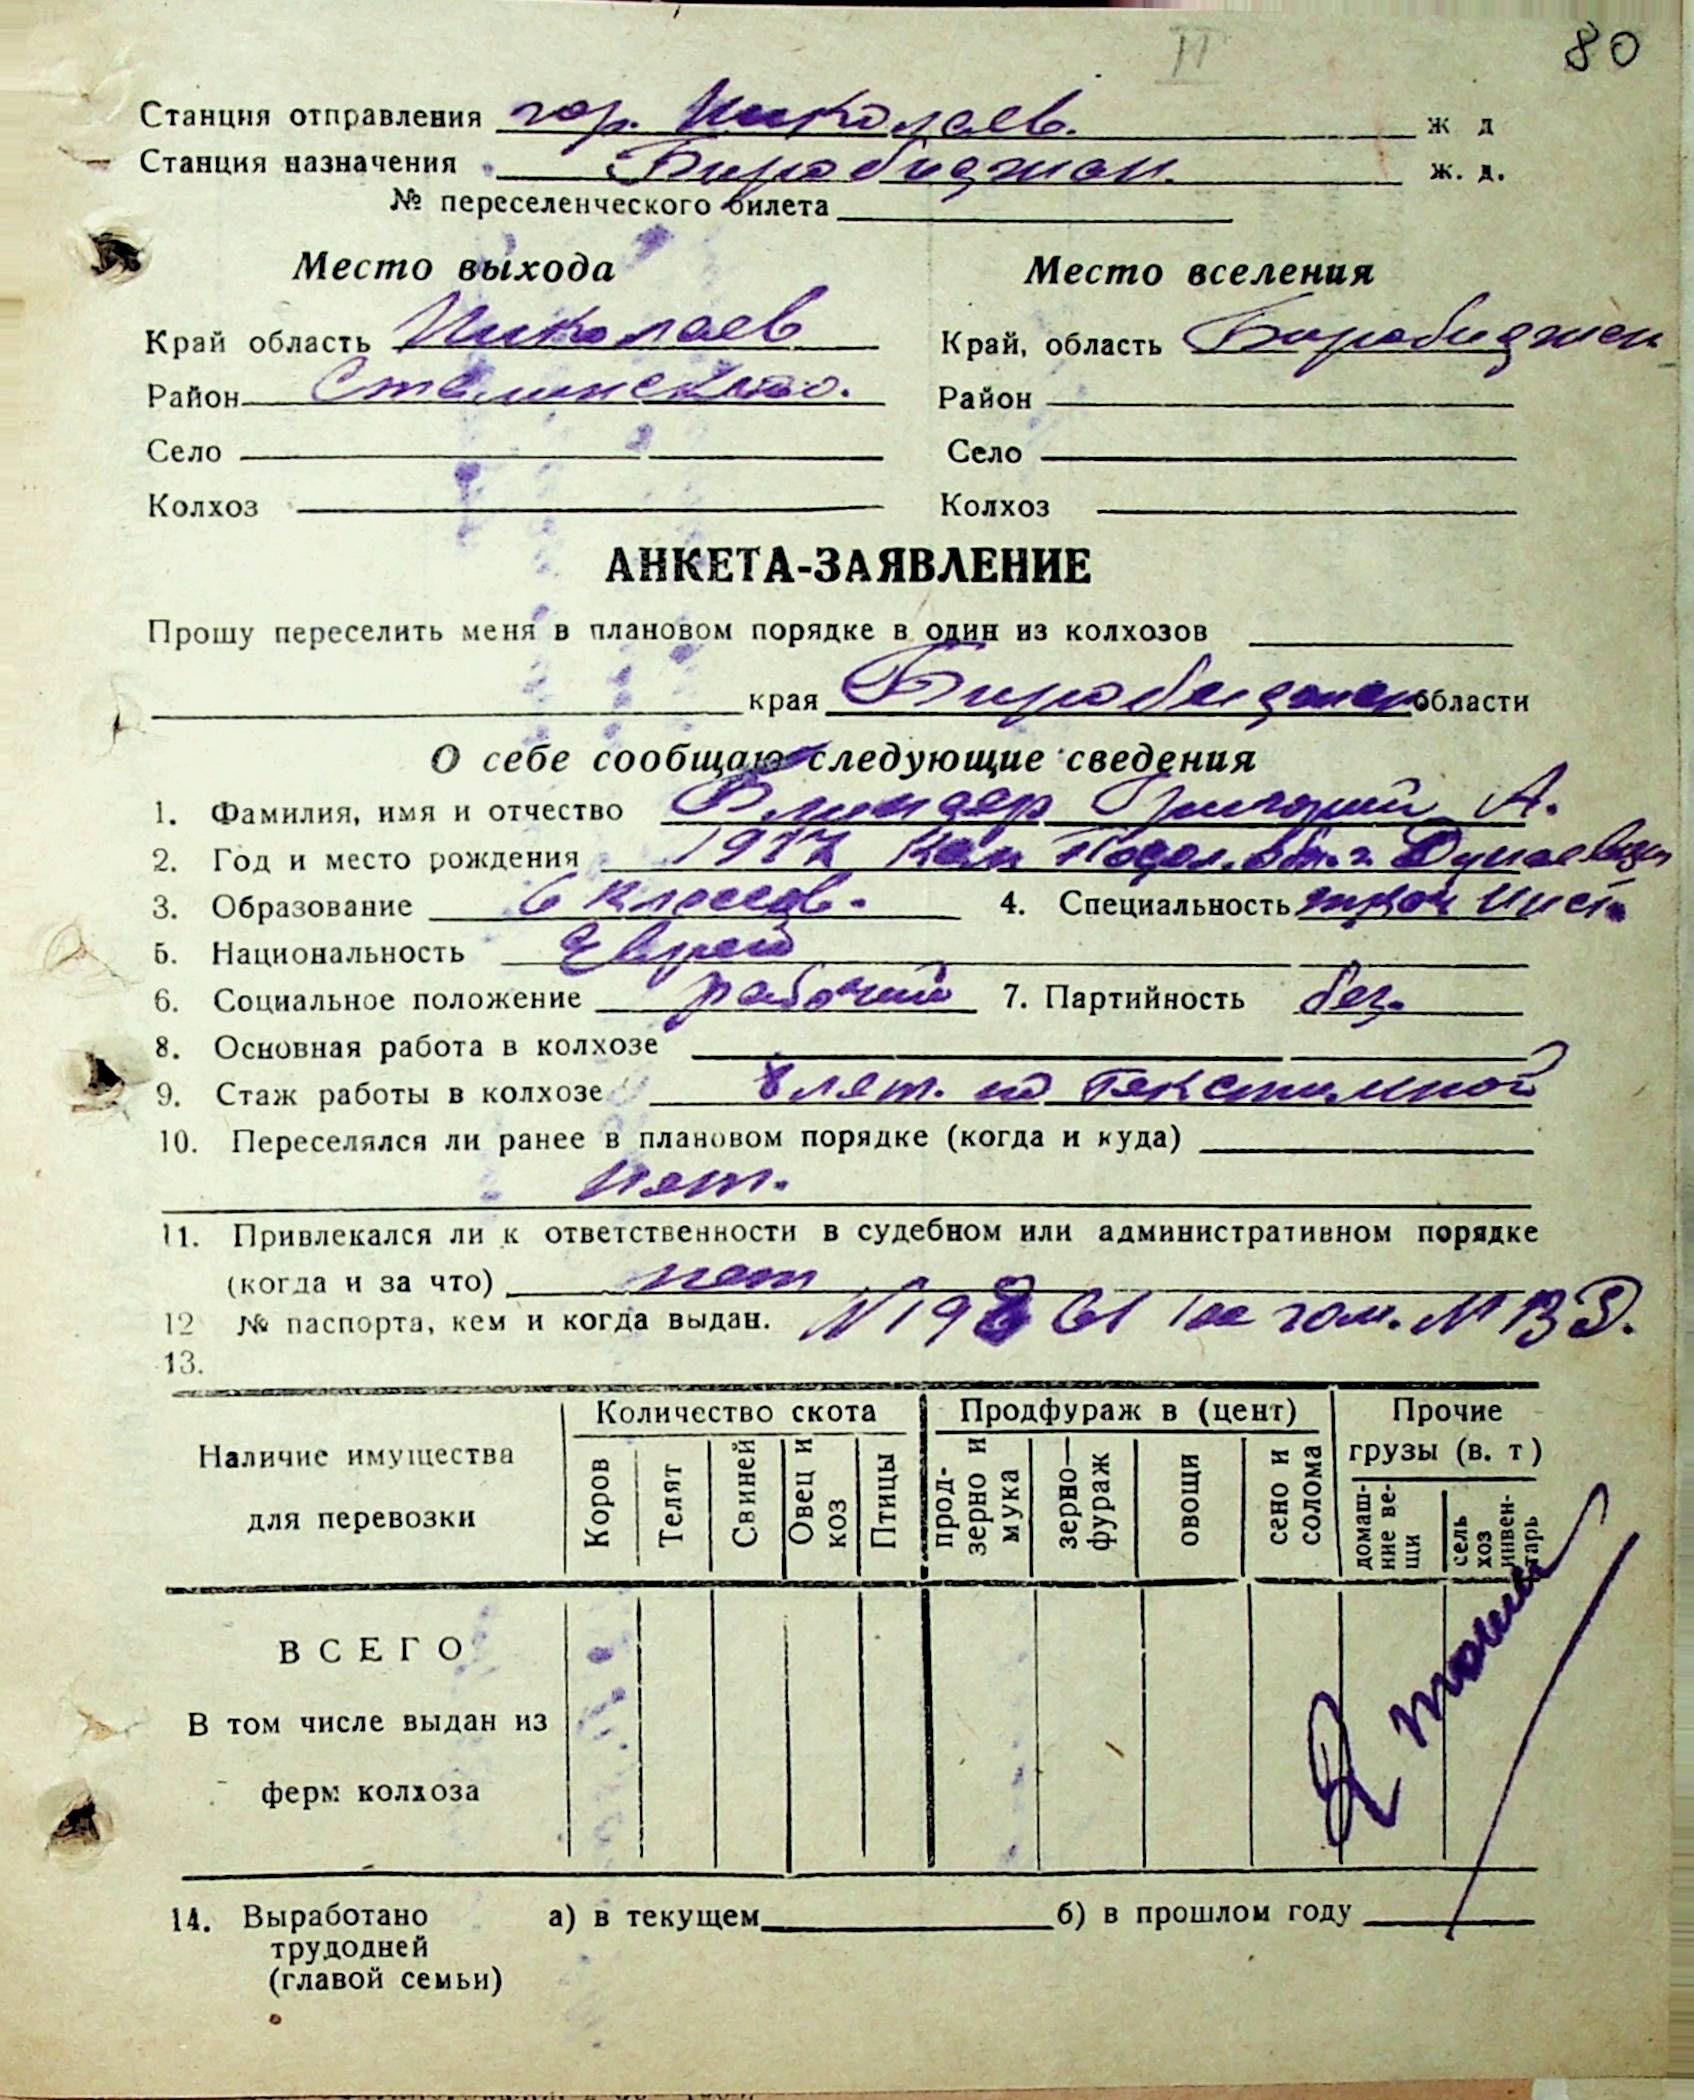 II
80
Станция отправления гор. Николаев. ж д
Станция назначения Биробиджан. ж. д.
№ переселенческого билета
Место выхода Место вселения
Край область Николаев Край, область Биробиджан
Район Сталинского. Район
Село Село
Колхоз Колхоз
АНКЕТА-ЗАЯВЛЕНИЕ
Прошу переселить меня в плановом порядке в один из колхозов
края Биробиджан области
О себе сообщаю следующие сведения
1. Фамилия, имя и отчество Блиндер Григорий А.
2. Год и место рождения Кам Подол. обл. г. Дунаевцы
3. Образование 6 классов. 4. Специальность
5. Национальность Еврей
6. Социальное положение рабочий 7. Партийность бец.
8. Основная работа в колхозе
9. Стаж работы в колхозе 8 лет. по Текстильной
10. Переселялся ли ранее в плановом порядке (когда и куда)
нет.
11. Привлекался ли к ответственности в судебном или административном порядке
(когда и за что) нет
12 № паспорта, кем и когда выдан.
13.
Наличие имущества для перевозки
Количество скота
Продфураж в (цент)
Прочие грузы (в. т)
Коров
Телят
Свиней
Овец и коз
Птицы
прод-зерно и мука
зерно—фураж
овощи
сено и солома
домаш-ние ве-щи
сель хоз инвен-тарь
ВСЕГО
В том числе выдан из
ферм колхоза
14. Выработано а) в текущем б) в прошлом году
трудодней
(главой семьи)